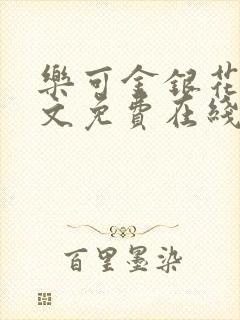 樂可金銀花
文免費在綫
百里墨染